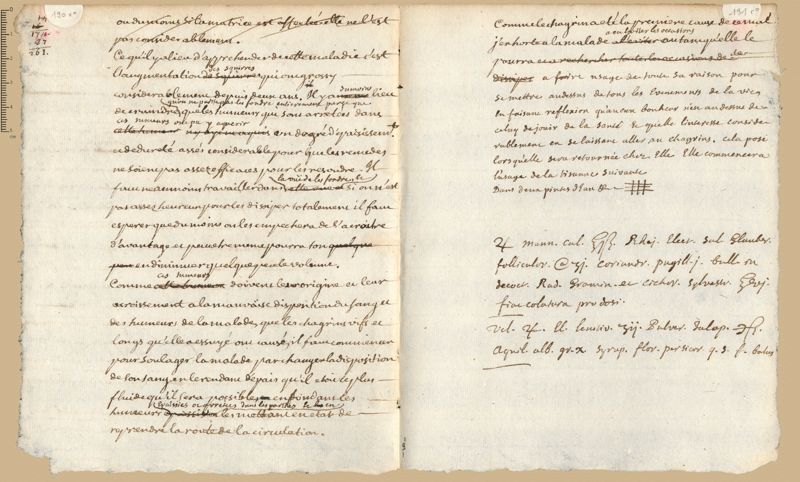 190 vo
ou du moins si la matrice est affectée elle ne l'est
pas considerablement.
Ce qu'il y a lieu d'apprehender de cette maladie c'est
l'augmentation des squirres qui ont grossy
considerablement depuis deux ans. Il y a lieu
de craindre qu'on ne puisse pas les fondre entierement parce que
que les humeurs qui sont arretées dans
ces tumeurs ont pu y acquerir
cette humeur un degré d'epaississem.t
et de dureté assés considerable pour que les remedes
ne soient pas assez efficaces pour les resoudre. Il
faut neantmoins travailler dans la vüe de les fondre et
si on n'est
pas assez heureux pour les dissiper totalement il faut
esperer que du moins on les empechera de s'acroitre
d'avantage et peut etre meme pourra t'on quelque
peu en diminuer quelque peu le volume.
ces tumeurs
Comme doivent leur origine et leur
acroissement a la mauvaise disposition du sang et
des humeurs de la malade, que les chagrins vifs et
longs qu'elle a essuyé ont causé, il faut commencer
pour soulager la malade par changer la disposition
de son sang en le rendant d'epais qu'il etoit le plus
fluide qu'il sera possible en fondant les
humeurs epaissies ou arretées dans les parties et en
les mettant en etat de
reprendre la route de la circulation.
191 ro
Comme le chagrin a eté la premiere cause de ce mal
j'exhorte la malade a en eviter les occasions
autant qu'elle le
pourra et a rechercher toutes les occasions de se
dissiper a faire usage de toute sa raison pour
se mettre audessus de tous les evenements de la vie
en faisant reflexion qu'aucun bonheur n'est audessus de
celuy de jouir de la santé et qu'elle l'interesse conside
rablement en se laissant aller au chagrin. cela posé
lorsqu'elle sera retournée chez Elle Elle commencera
l'usage de la tisanne suivante
Dans deux pintes d'eau
mann. cal. Rhej. Elect. sal Glauber.
follicular. coriandr. pugill. j. bull in
decoct. Rad. Gramin. et cichor. sylvestr.
fiat colatura pro dosi.
vel. El. lenitiv. Pulver. Jalap.
Aquil. alb. gr. x syrup. flor. persicor. q. s. f. bolus